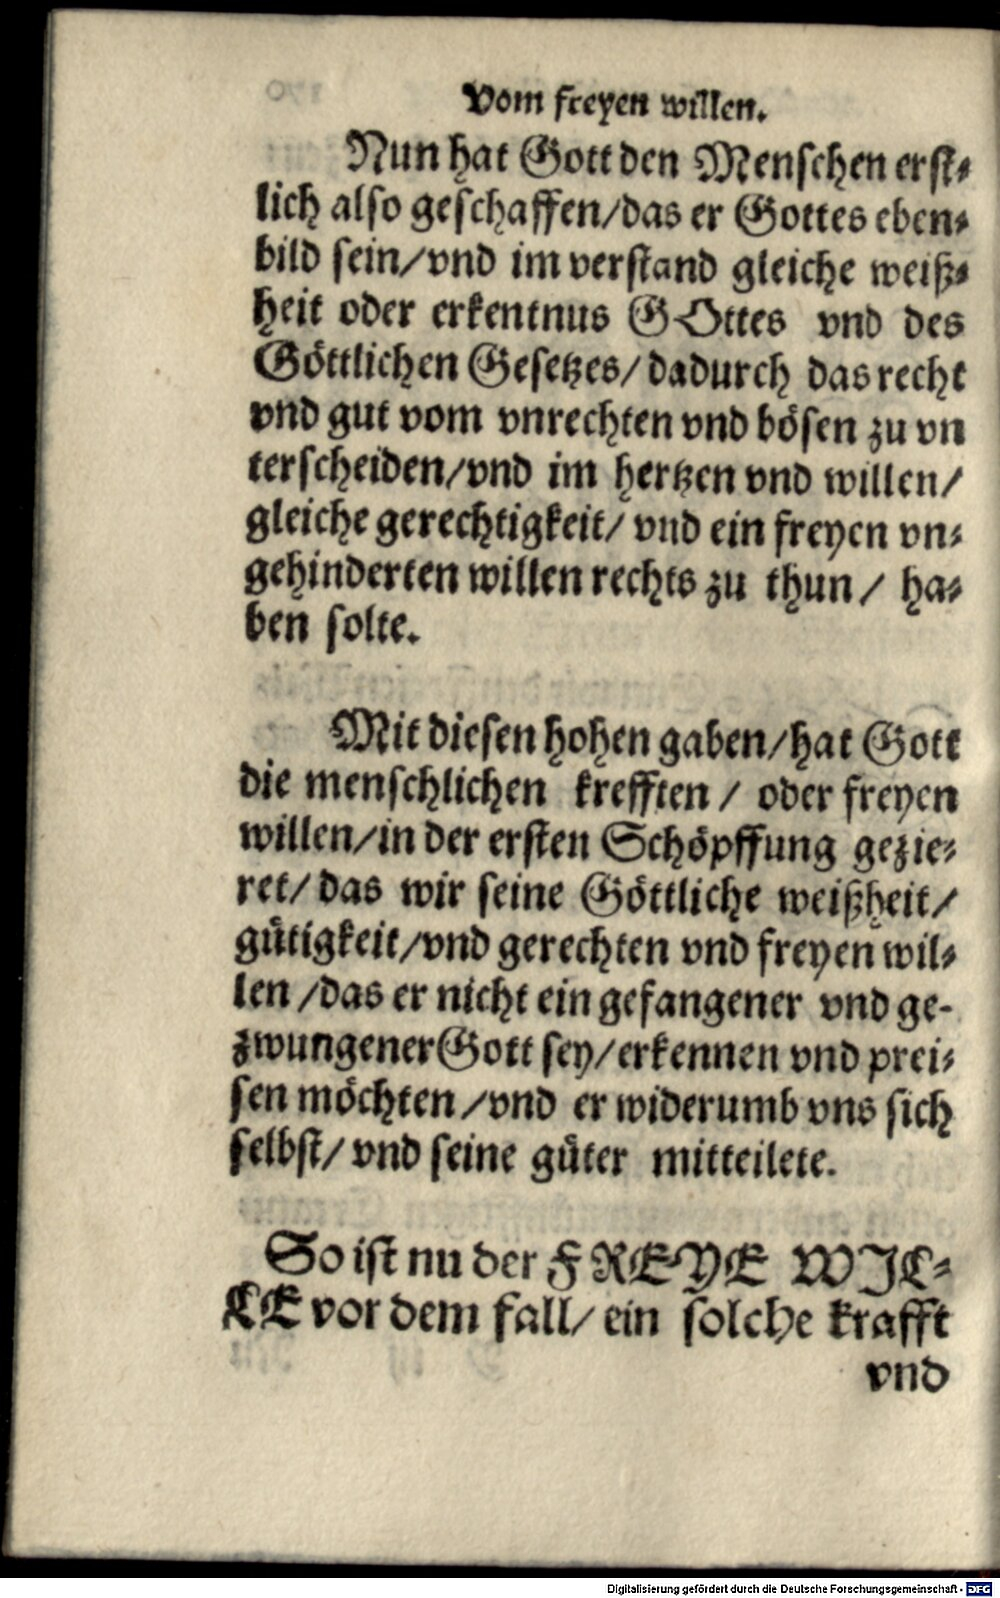 Vom freyen willen.
Nun hat Gott den Menschen erst-
lich also geschaffen/das er Gottes eben-
bild sein/vnd im verstand gleiche weiß-
heit oder erkentnus GOttes vnd des
Göttlichen Gesetzes/dadurch das recht
vnd gut vom vnrechten vnd bösen zu vn
terscheiden/vnd im hertzen vnd willen/
gleiche gerechtigkeit/vnd ein freyen vn-
gehinderten willen rechts zu thun/ ha-
ben solte.
Mit diesen hohen gaben/hat Gott
die menschlichen krefften / oder freyen
willen/in der ersten Schöpffung gezie-
ret/das wir seine Göttliche weißheit/
gütigkeit/vnd gerechten vnd freyen wil-
len /das er nicht ein gefangener vnd ge-
zwungener Gott sey/erkennen vnd prei-
sen möchten /vnd er widerumb vns sich
selbst/ vnd seine güter mitteilete.
So ist nu der FREYE WIL-
LE vor dem fall/ ein solche krafft
vnd
Digitalisierung gefördert durch die Deutsche Forschungsgemeinschaft - DFG